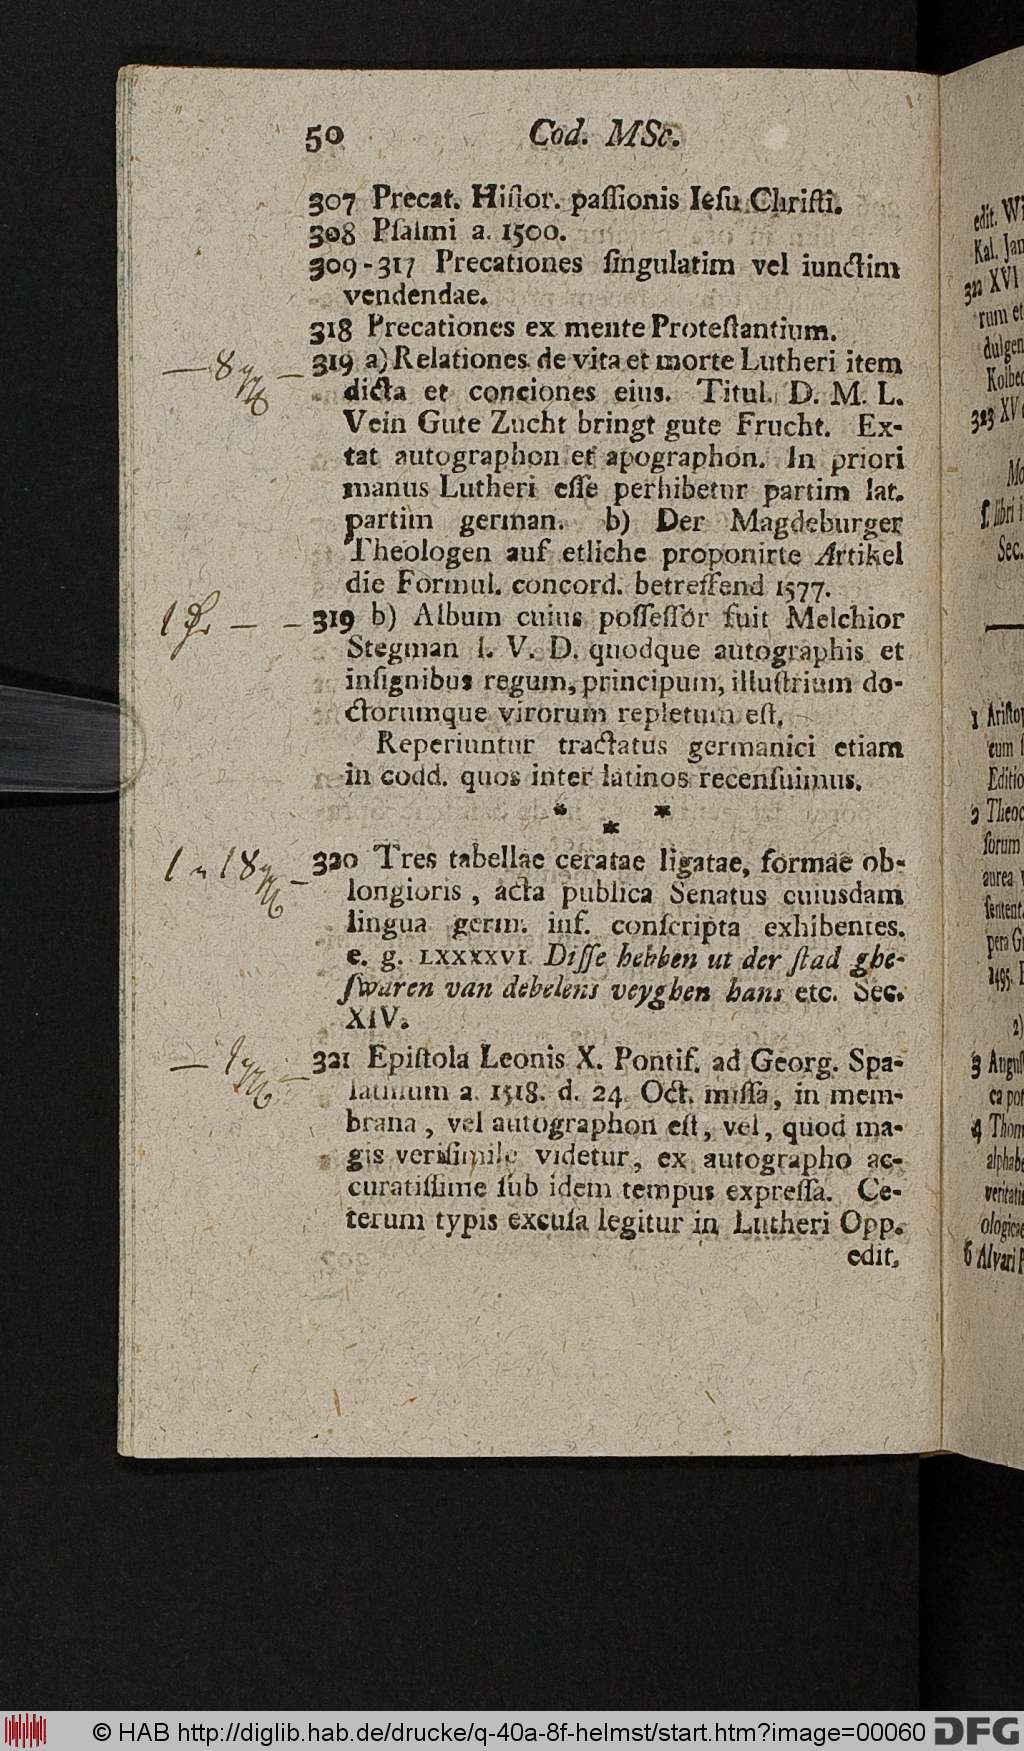 50 Cod. MSc.
307 Precat. Histor. passionis Iesu Christi.
308 Psalmi a. 1500.
309-317 Precationes singulatim vel iunctim
vendendae.
318 Precationes ex mente Protestantium.
— 8 — 319 a) Relationes de vita et morte Lutheri item
dicta et conciones eius. Titul. D. M. L.
Vein Gute Zucht bringt gute Frucht. Ex-
tat autographon et apographon. In priori
manus Lutheri esse perhibetur partim lat.
partim german. b) Der Magdeburger
Theologen auf etliche proponirte Artikel
die Formul. concord. betreffend 1577.
1 — — 319 b) Album cuius possessor fuit Melchior
Stegman I. V. D. quodque autographis et
insignibus regum, principum, illustrium do-
ctorumque virorum repletum est.
Reperiuntur tractatus germanici etiam
in codd. quos inter latinos recensuimus.
* *
*
1 18 — 320 Tres tabellae ceratae ligatae, formae ob-
longioris, acta publica Senatus cuiusdam
lingua germ. inf. conscripta exhibentes.
e. g. LXXXXVI Disse hebben ut der stad ghe-
swaren van debelens veyghen hans etc. Sec.
XIV.
— — 321 Epistola Leonis X. Pontif. ad Georg. Spa-
latinum a. 1518. d. 24. Oct. missa, in mem-
brana, vel autographon est, vel, quod ma-
gis verisimile videtur, ex autographo ac-
curatissime sub idem tempus expressa. Ce-
terum typis excusa legitur in Lutheri Opp.
edit.
edit.
Kal. Jan
322 XVI
rum et
dulgen
Kolbec
323 XV
libri i
Sec.
1
eum
Editio
2 Theoc
sorum
aurea
sentent.
pera G
1495.
2)
3 August
ca por
4 Thom
alphabe
veritati
ologicae
6 Alvari P
© HAB http://diglib.hab.de/drucke/q-40a-8f-helmst/start.htm?image=00060 DFG